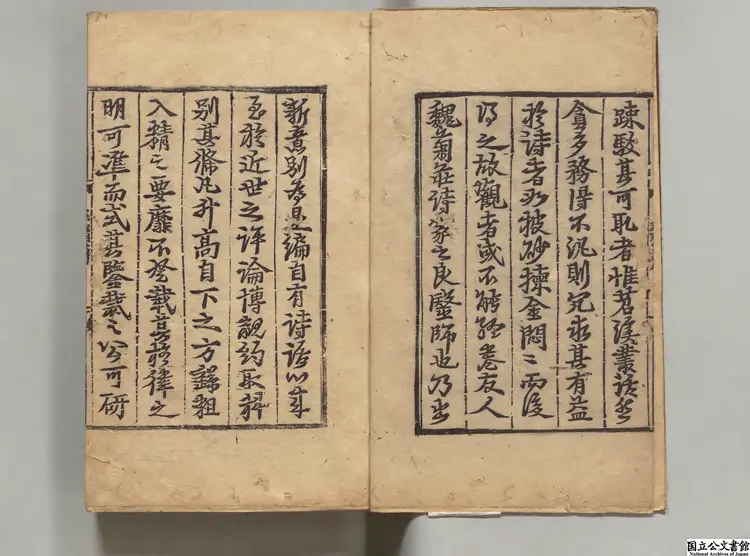 疎駁其可取者惟苕溪叢話然
貪多務得不汎則冗求其有益
於詩者如披砂揀金悶〻而後
得之故觀者或不能終卷友人
魏菊莊詩家之良毉師也乃出
新意別為是編自有詩話以来
至於近世之評論博觀約取科
別其條凡升高自下之方繇粗
入精之要靡不登載其格律之
明可準而式其鑒裁之公可研
国立公文書館
National Archives of Japan